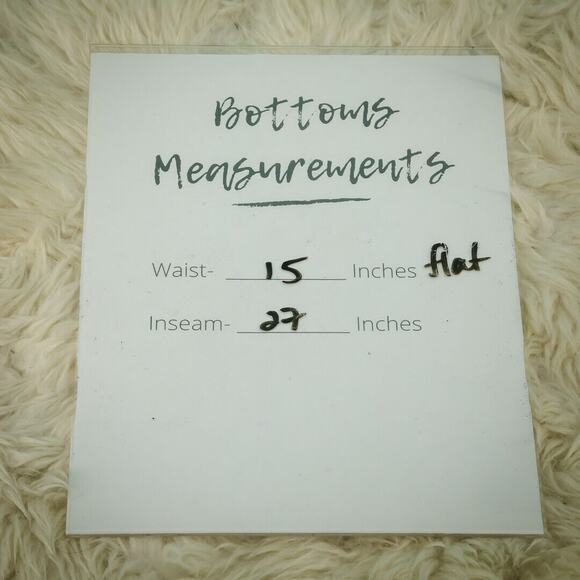 Bottoms
Measurements
Waist- 15 Inches flat
Inseam- 27 Inches